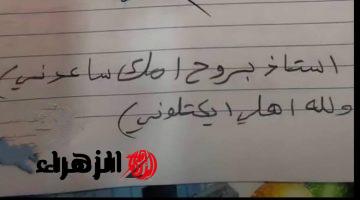 استاذ بروح امك ساعدني)
ولله اهلي ايكتلوني)
الزهراء